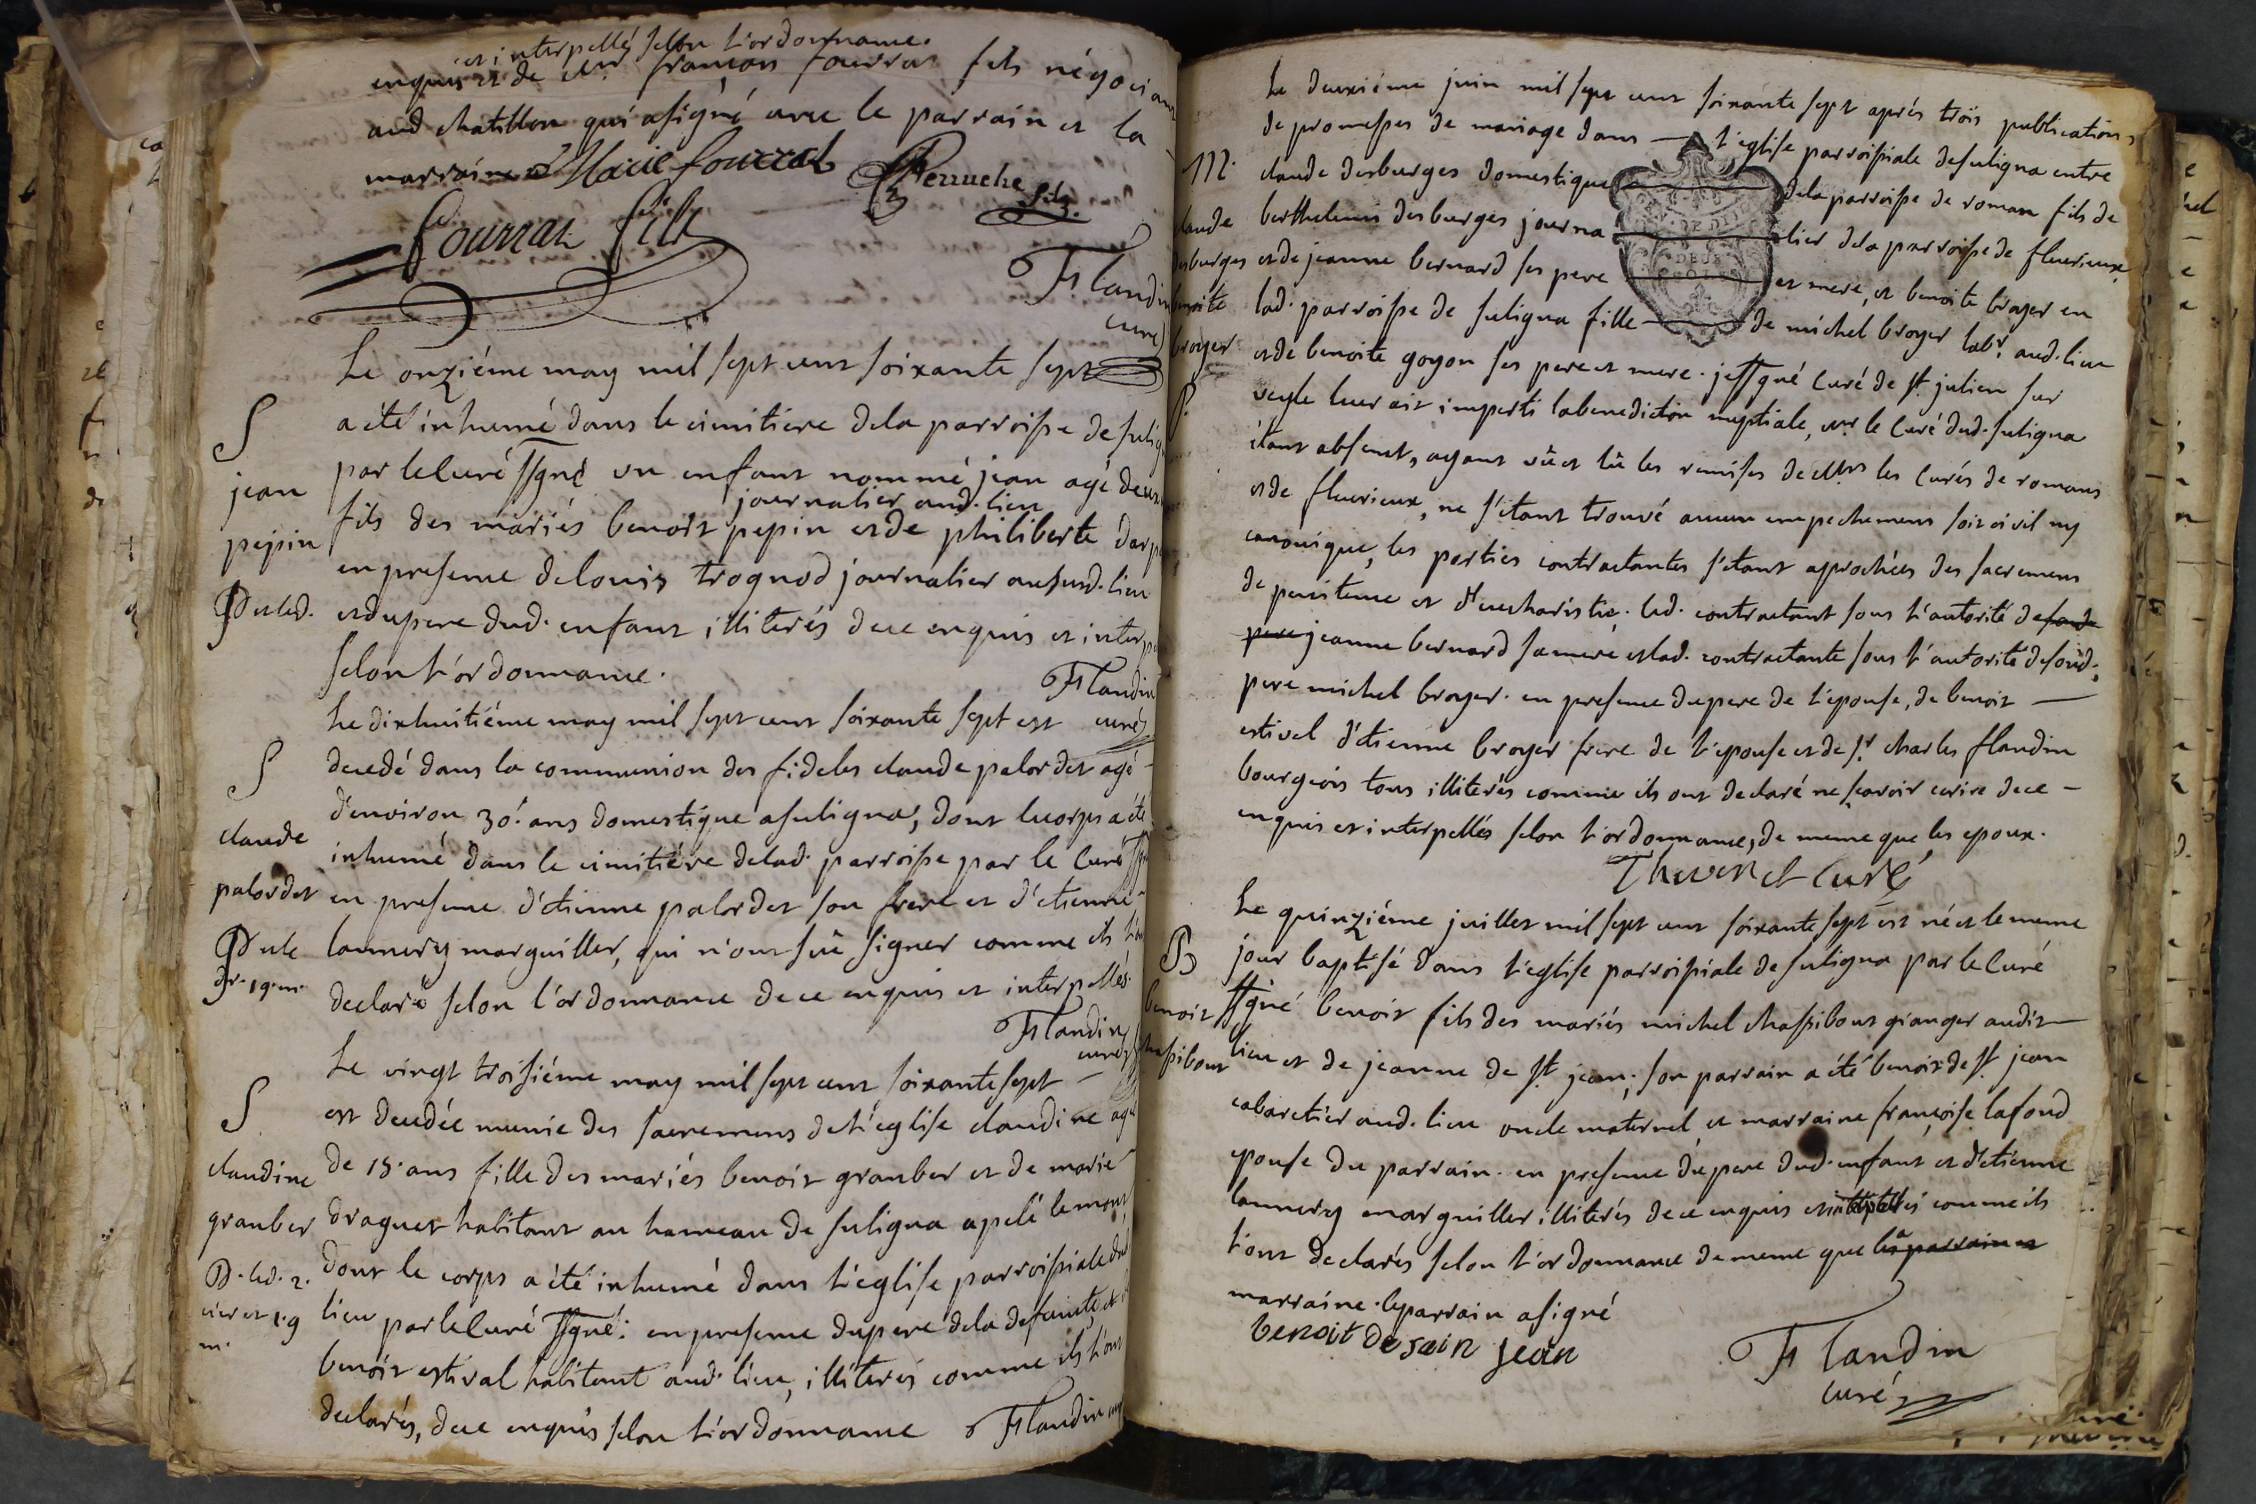 et interpellé selon l'ordonnance.
enquis et de Mr françois fourrat fils négociant
aud chatillon qui a signé avec le parrain et la
marraine Marie fourrat Perruche fils.
fourrat fils
Flandin
curé
Le onziéme may mil sept cent soixante sept
a été inhumé dans le cimitiere dela parroisse de
S
par le Curé ssgné un enfant nommé jean agé de
jean
journalier aud. lieu
fils des mariés benoit pepin et de philiberte
pepin
en presence de louis trognod journalier aususd. lieu
et led.
et du pere dud. enfant illiterés de ce enquis et
selon l'ordonnance.
Flandin
curé
Le dixhuitiéme may mil sept cent soixante sept est
S
decedé dans la communion des fideles claude palordet agé
d'environ 30. ans domestique a suligna, dont le corps a été
claude
inhumé dans le cimitiére de lad. parroisse par le Curé
palordet
en presence d'etienne palordet son frere et d'etienne
et le
lannery marguiller, qui n'ont sû signer comme ils
dr. 19. m.
declaré selon l'ordonnance de ce enquis et interpellés.
Flandin
curé
Le vingt troisiéme may mil sept cent soixante sept
S
est decedée munie des sacremens de l'eglise claudine
claudine
de 15. ans fille des mariés benoit granber et de marie
granber
draguet habitant au hameau de suligna apelé le mont
D. led. 2.
dont le corps a été inhumé dans l'eglise parroissiale
et 19
m.
lieu par le Curé ssgné. en presence du pere dela defunte, et
benoit estival habitant aud. lieu, illiterés comme ils l'ont
declarés, de ce enquis selon l'ordonnance Flandin
Le deuxiéme juin mil sept cent soixante sept aprés trois publications
de promesses de mariage dans l'eglise parroissiale de suligna entre
M.
claude desburges domestique dela parroisse de roman fils de
claude
berthelemi desburges journalier dela parroisse de fleurieux
desburges
et de jeanne bernard ses pere et mere, et benoite broyer en
benoite
lad. parroisse de suligna fille de michel broyer labr. aud. lieu
broyer
et de benoite goyon ses pere et mere. je ssgné Curé de st. julien sur
veyle leur ait imparti la benediction nuptiale, mr le Curé dud. suligna
étant absent, ayant vû et lû les remises de Mrs les Curés de romans
et de fleurieux, ne s'étant trouvé aucun empechement soit civil ny
canonique, les parties contractantes s'étant approchées des sacremens
de penitence et d'eucharistie. led. contractant sous l'autorité de
pere jeanne bernard sa mere et lad. contractante sous l'autorité de
pere michel broyer. en presence du pere de l'epouse, de benoit
estival d'étienne broyer frere de l'epouse et de sr. charles flandin
bourgeois tous illiterés comme ils ont declaré ne scavoir ecrire de ce
enquis et interpellés selon l'ordonnance, de meme que les epoux.
Thevenet Curé
Le quinziéme juillet mil sept cent soixante sept est né et le meme
B
jour baptisé dans l'eglise parroissiale de suligna par le Curé
benoit
ssgné benoit fils des mariés michel chassibout granger audit
chassibout
lieu et de jeanne de st. jean; son parrain a été benoit de st. jean
cabaretier aud. lieu oncle maternel et marraine françoise lafond
epouse du parrain. en presence du pere dud. enfant et d'etienne
lannery marguiller illiterés de ce enquis et interpellés comme ils
l'ont declarés selon l'ordonnance de meme que la parrain et
marraine. le parrain a signé
benoit de sain jean
Flandin
curé